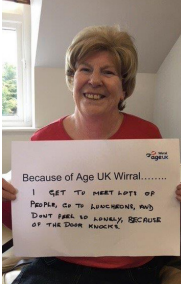 Wirral
age UK
Because of Age UK Wirral........
I GET TO MEET LOTS OF
PEOPLE, GO TO LUNCHEONS, AND
DONT FEEL SO LONELY, BECAUSE
OF THE DOOR KNOCKS